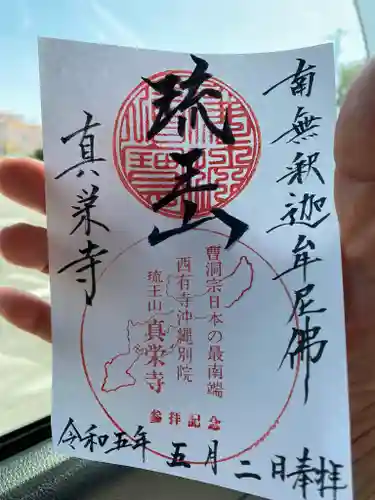 南無釈迦牟尼佛
琉王山
真栄寺
曹洞宗日本の最南端
西有寺沖縄別院
琉王山 真栄寺
参拝記念
令和五年 五月二日奉拝